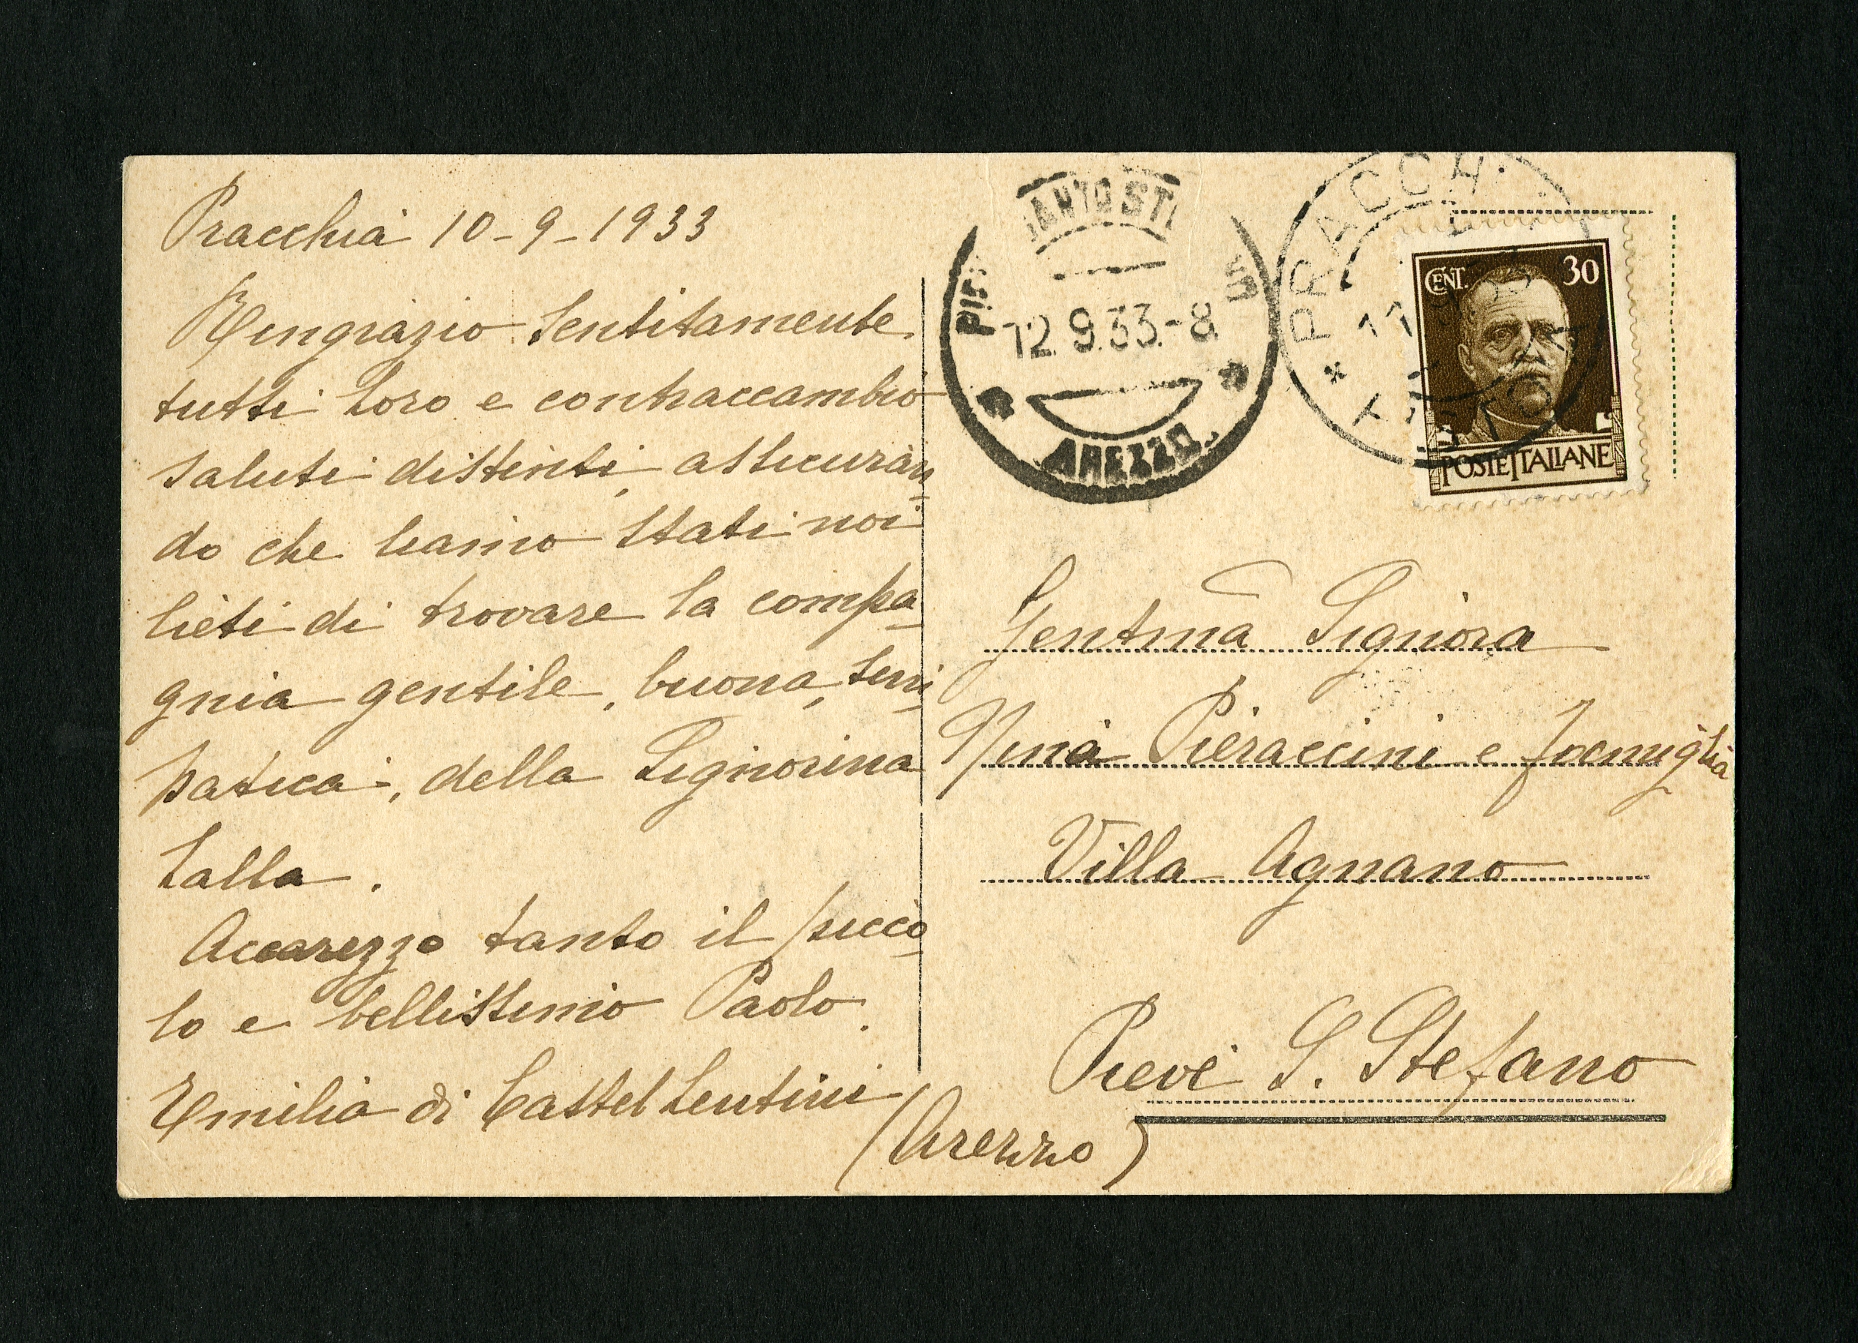 Pracchia 10-9-1933
Ringrazio sentitamente
tutti loro e contraccambio
saluti distinti, assicuran-
do che siamo stati noi
lieti di trovare la compa-
gnia gentile, buona, sim-
patica, della Signorina
Lalla.
Accarezzo tanto il picco-
lo e bellissimo Paolo.
Emilia di Castel Lentini
SANTO ST
12.9.33.-8
AREZZO
PRACCH
CENT. 30
POSTE ITALIANE
Gentma Signora
Nina Pieraccini e famiglia
Villa Agnano
Pieve S. Stefano
(Arezzo)